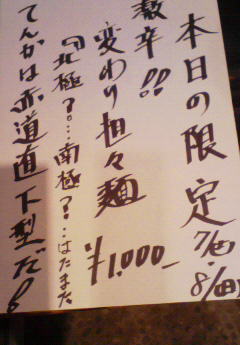 本日の限定
激辛!!
変わり担々麺
¥1,000-
『北極?…南極?…はたまた
てんかは赤道直下型だ!